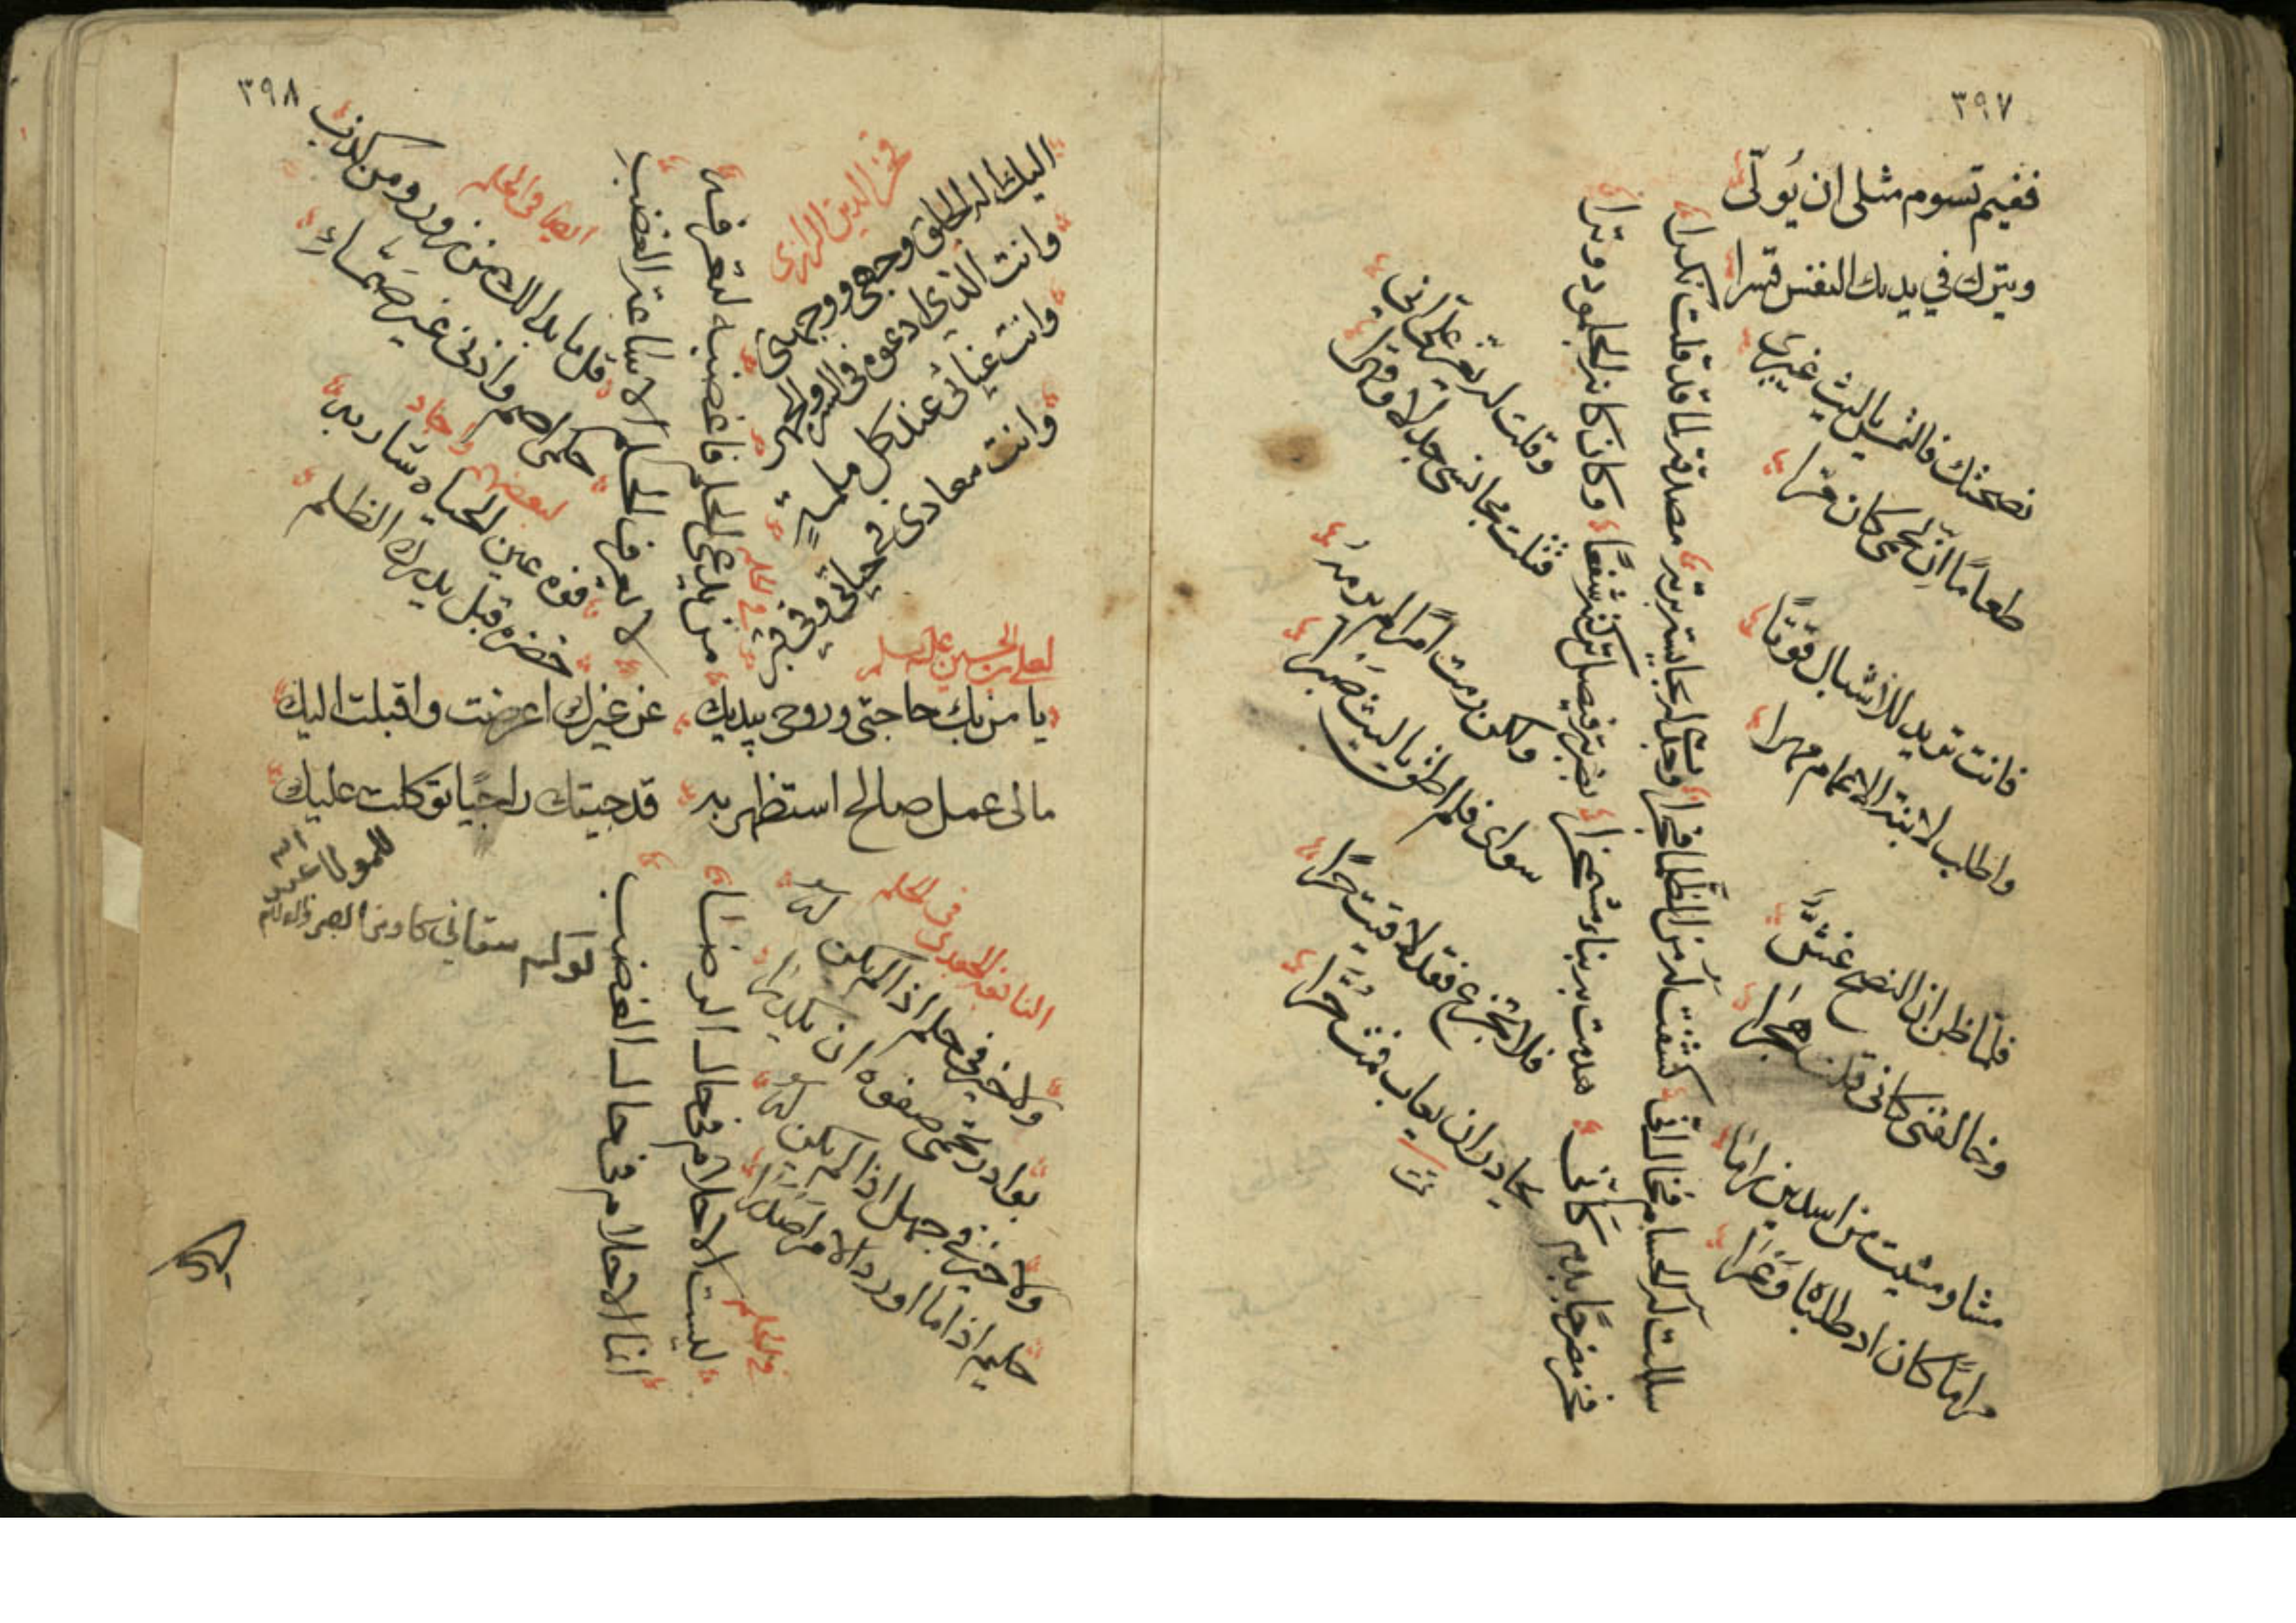 ٣٩٧
ففيم تسوم مثلى ان يُولّى
ويترك في يديك النفس قسرا
نصحتك فالتمس يا ليث غيرى
طعامًا انّ لحمى كان مرّا
فانت تريد للاشبال قوتًا
واطلب لابنة الاعمام مهرا
فلمّا ظن ان النصح غشٌّ
وخالفنى كانى قلت هجرا
مشا ومشيت من اسدين راما
مرامًا كان اذ طلباه وعرا
سللت له الحسام فخال انى
كشفت له من الظلما فجرا
بدى له بها يستر
مصدقة لما قد قلت نكرا
فخر مضرجًا بدم كانى
هدمت به بناء مشمخرا
بضربة فيصل تركته شفعًا
وكان كانه الجلمود وترا
وقلت له يعز علىّ انى
قتلت مجانسى جلدا وقهرا
ولكن رمت امرًا لم يرمه
سواى فلم اطق يا ليث صبرا
فلا تجزع فقد لاقيت حرًا
يحاذر ان يعاب فمت حرّا
تمت
٣٩٨
فخر الدين الرازى
اليك اله الخلق وجهى ووجهتى
وانت الذى ادعوه فى السر والجهر
وانت غياثى عند كل ملمةٍ
وانت معاذى فى حياتى وفى قبرى
فى الحلم
من يدعى الحلم فاغضبه لتعرفه
لا يعرف الحلم الا ساعة الغضب
ايضا فى الحلم
قل ما بدا لك من زور ومن كذب
حلمى اصم واذنى غير صمّاء
لبعضهم واجاد
فوه عين الحياة شاربه
خضره قبل يدرك الظلم
لعلى بن الحسين عليه السلم
يا من بك حاجتى وروحى بيديك
عن غيرك اعرضت واقبلت اليك
مالى عمل صالح استظهر به
قد جيتك راجيًا توكلت عليك
النابغة الجعدى فى الحلم
ولا خير فى حلم اذا لم يكن له
بوادر تحمى صفوه ان يكدرا
ولا خير فى جهل اذا لم يكن له
حليم اذا ما اورد الامر اصدرا
فى الحلم
ليست الاحلام فى حال الرضا
انما الاحلام فى حال الغضب